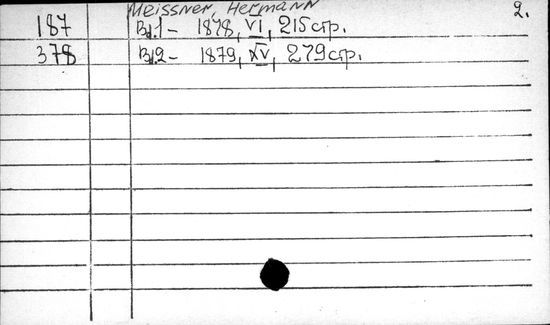 Meissner, Hermann 2.
187 Bd.1 - 1878, VI, 215 стр.
378 Bd.2 - 1879, XV, 279 стр.